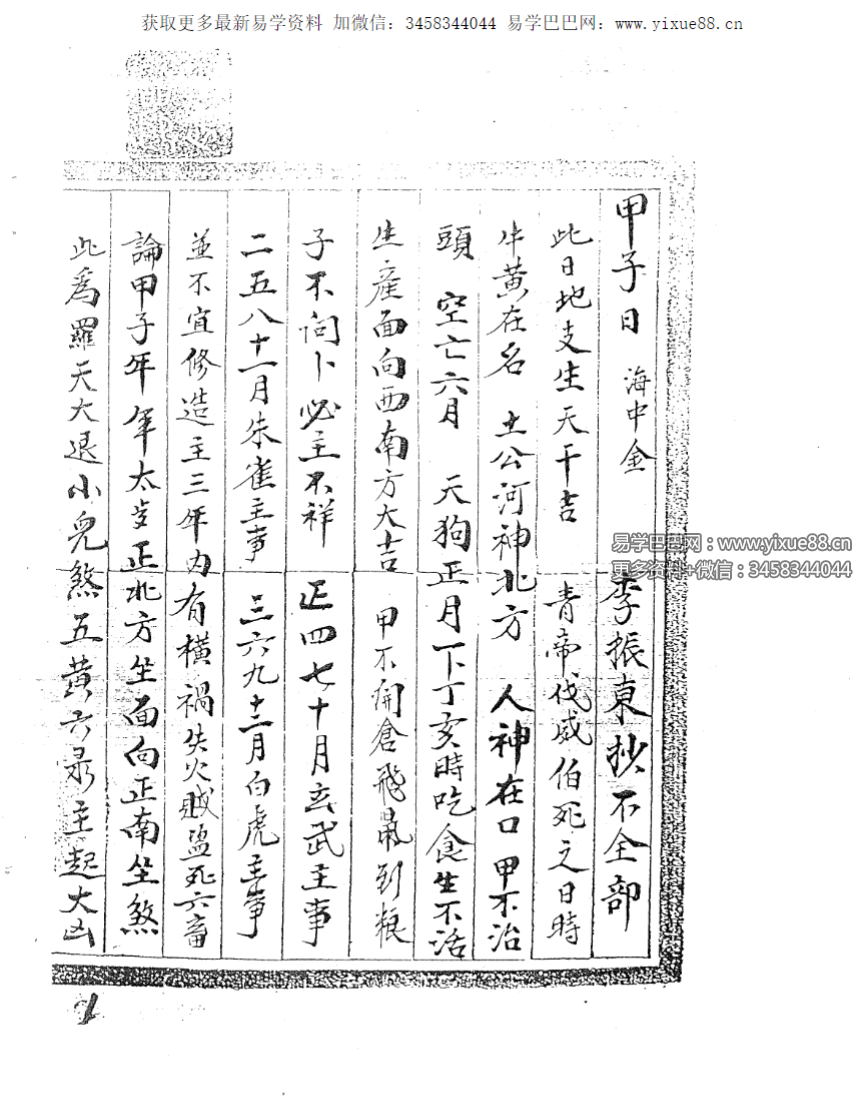 获取更多最新易学资料 加微信：3458344044 易学巴巴网：www.yixue88.cn
甲子日 海中金 李振東抄不全部
此日地支生天干吉 青帝伐威伯死之日時
牛黄在名 土公河神北方 人神在口 甲不治
頭 空亡六月 天狗正月下丁亥時吃食生不活
生產面向西南方大吉 甲不開倉飛鼠到粮
子不问卜必主不祥 正四七十月玄武主事
二五八十一月朱雀主事 三六九十二月白虎主事
並不宜修造主三年内有横禍失火賊盗死六畜
論甲子年年太岁正北方坐面向正南坐煞
此為羅天大退小兒煞五黄六录主起大凶
易学巴巴网：www.yixue88.cn
更多资料+微信：3458344044
1